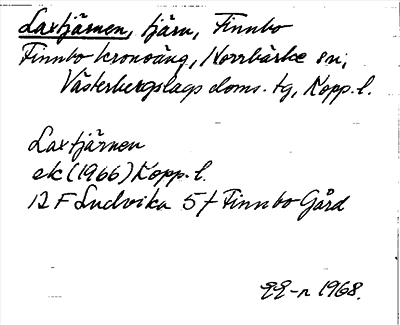 Laxtjärnen, tjärn, Finnbo
Finnbo kronoäng, Norrbärke sn,
Västerbergslags doms. tg, Kopp. l.
Laxtjärnen
ek (1966) Kopp. l.
12 F Ludvika 5 f Finnbo Gård
1968.